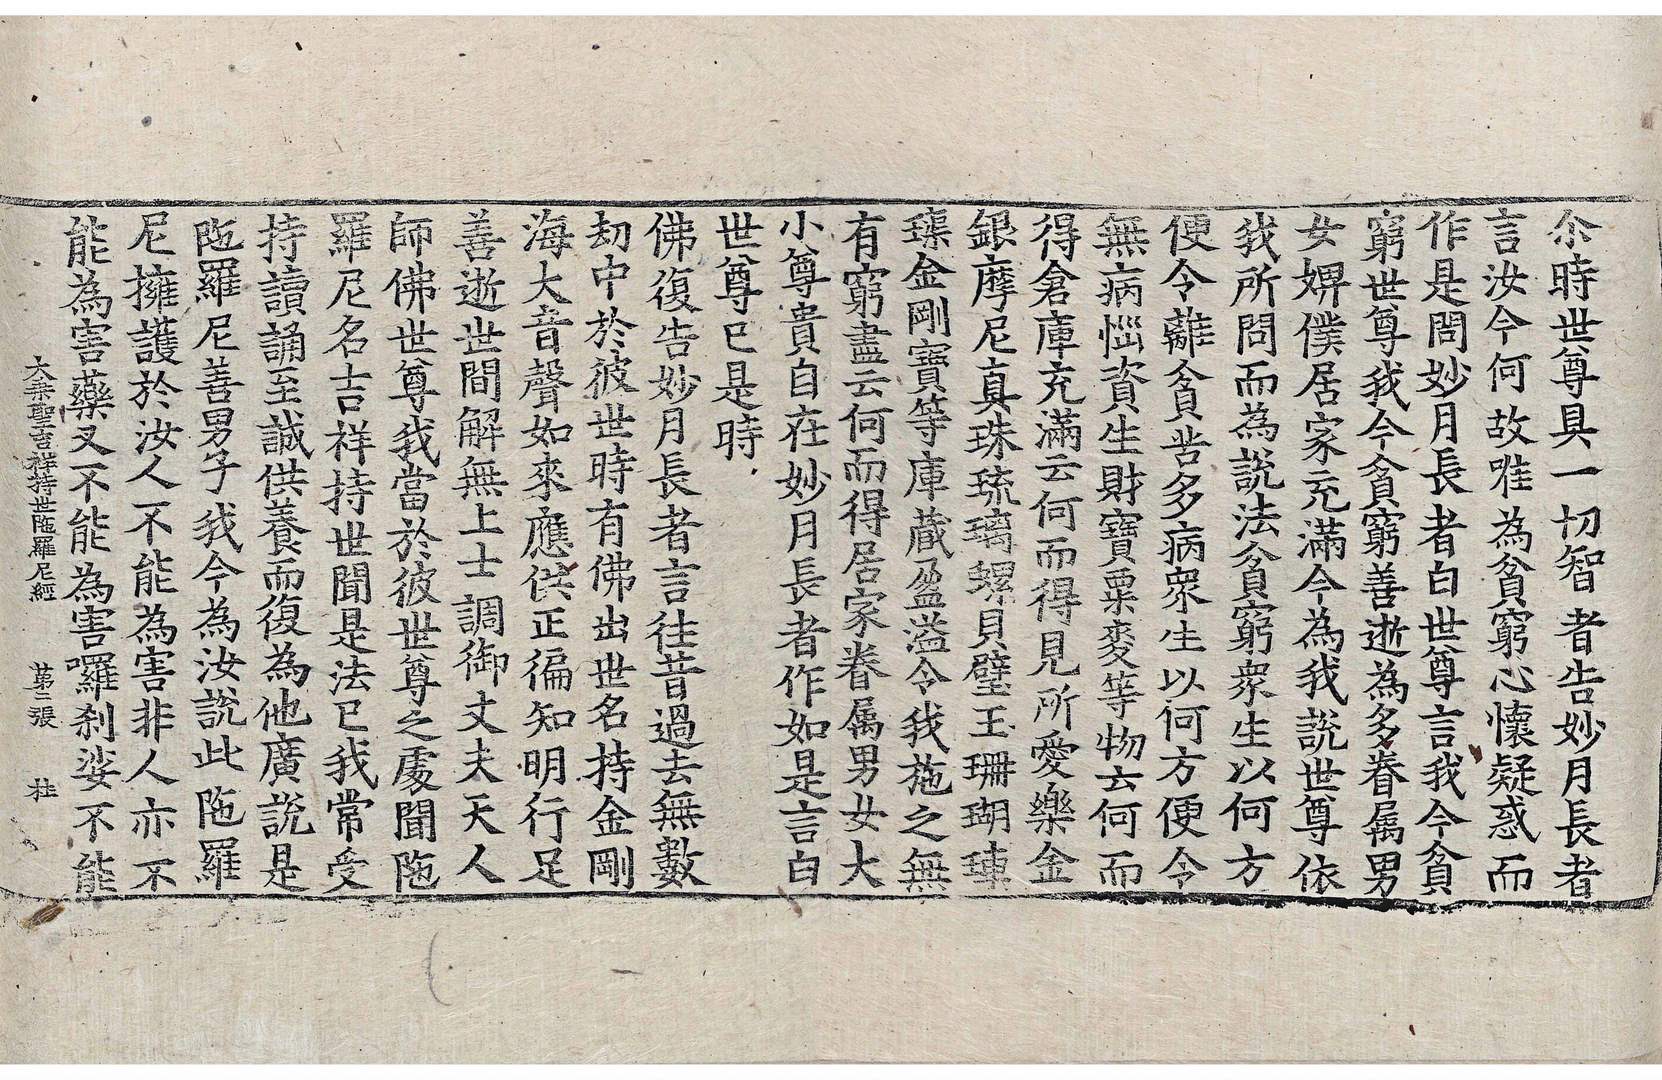 尒時世尊具一切智者告妙月長者
言汝今何故唯為貧窮心懷疑惑而
作是問妙月長者白世尊言我今貧
窮世尊我今貧窮善逝為多眷属男
女婢僕居家充滿今為我說世尊依
我所問而為說法貧窮衆生以何方
便令離貧苦多病衆生以何方便令
無病惱資生財寶粟麥等物云何而
得倉庫充滿云何而得見所愛樂金
銀摩尼真珠琉璃螺貝璧玉珊瑚㻋
璖金剛寶等庫蔵盈溢令我施之無
有窮盡云何而得居家眷属男女大
小尊貴自在妙月長者作如是言白
世尊已是時
佛復告妙月長者言往昔過去無數
劫中於彼世時有佛出世名持金剛
海大音聲如來應供正徧知明行足
善逝世間解無上士調御丈夫天人
師佛世尊我當於彼世尊之處聞陁
羅尼名吉祥持世聞是法已我常受
持讀誦至誠供養而復為他廣說是
陁羅尼善男子我今為汝說此陁羅
尼擁護於汝人不能為害非人亦不
能為害藥叉不能為害囉刹娑不能
大乗聖吉祥持世陁羅尼經 苐二張 桂